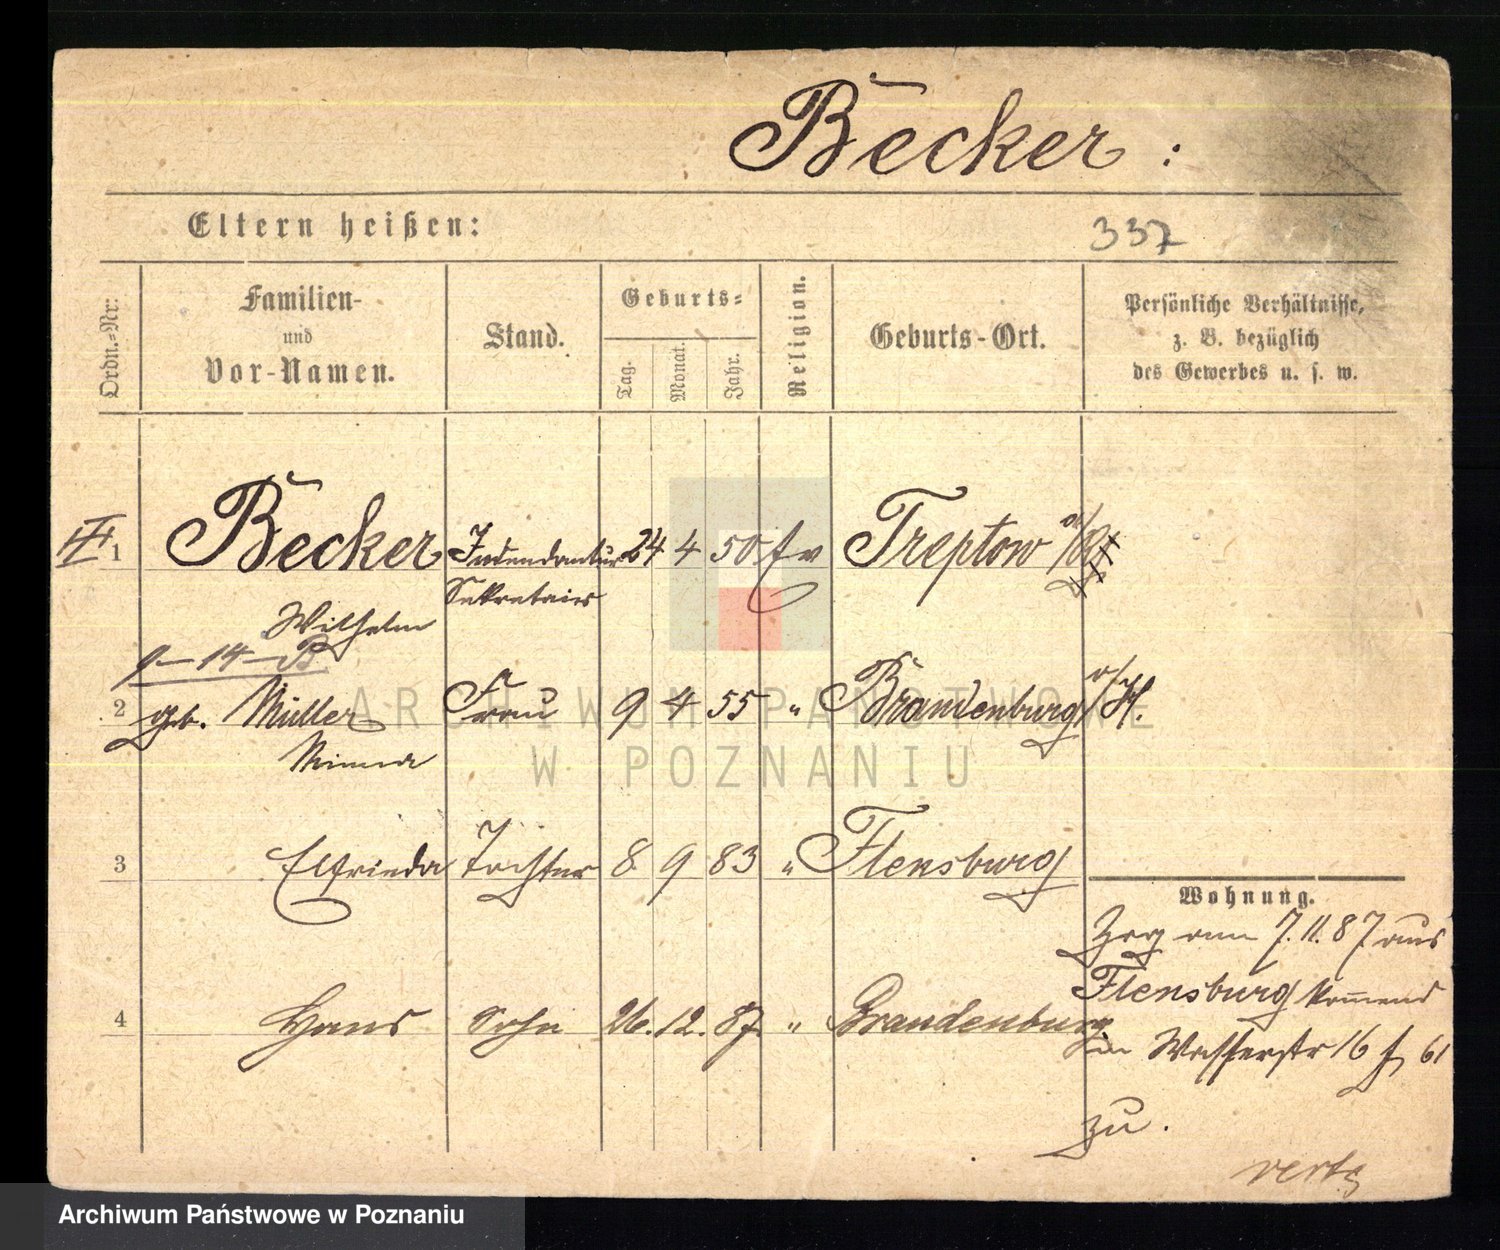 Becker :
Eltern heißen:
337
Ordn.-Nr:
Familien-
und
Vor-Namen.
Stand.
Geburts-
Tag.
Monat.
Jahr.
Religion.
Geburts-Ort.
Persönliche Verhältnisse,
z. B. bezüglich
des Gewerbes u. s. w.
III 1 Becker Intendantur 24 4 50 ev Treptow a/R
Sekretair
Wilhelm
2 geb. Müller Frau 9 4 55 " Brandenburg a/H.
Minna
3 Elfrieda Tochter 8 9 83 " Flensburg
Wohnung.
Zog am 7.11.87 aus
Flensburg kommend
4 Hans Sohn 26. 12. 87. " Brandenburg
in Wasserstr 16 61
zu.
ARCHIWUM PAŃSTWOWE
W POZNANIU
Archiwum Państwowe w Poznaniu